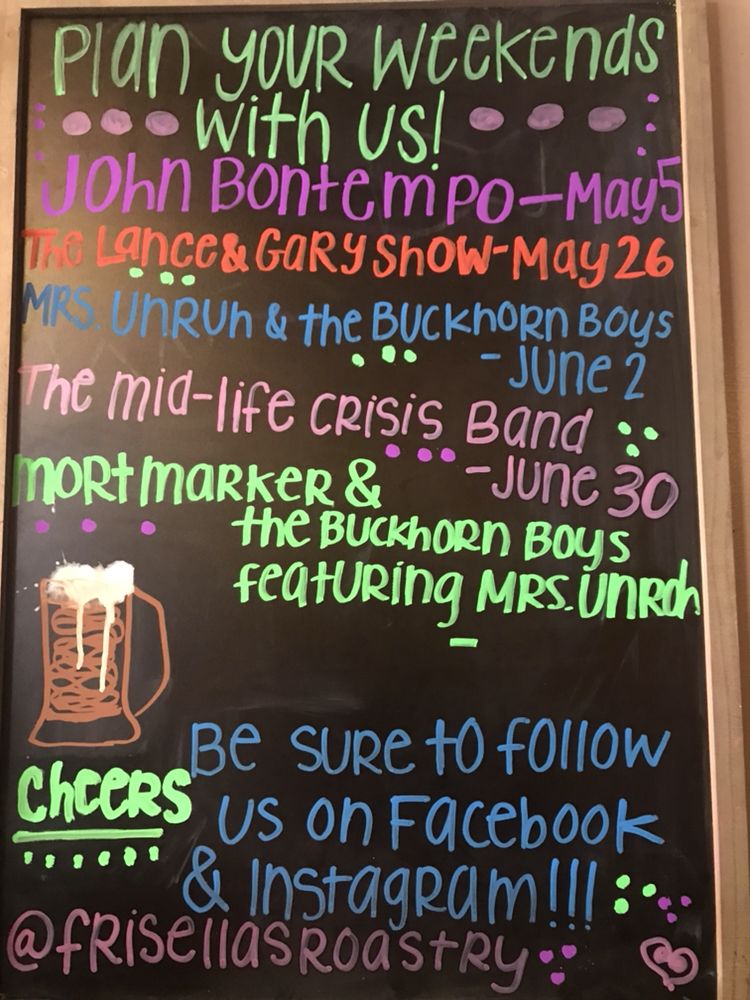 Plan your weekends
with us!
John Bontempo-May 5
The Lance & Gary Show-May 26
Mrs. Unruh & the Buckhorn Boys
- June 2
The mid-life crisis Band
- June 30
Mort Marker &
the Buckhorn Boys
featuring Mrs. Unrah
-
Cheers
Be sure to follow
us on Facebook
& Instagram!!!
@frisellasroastry